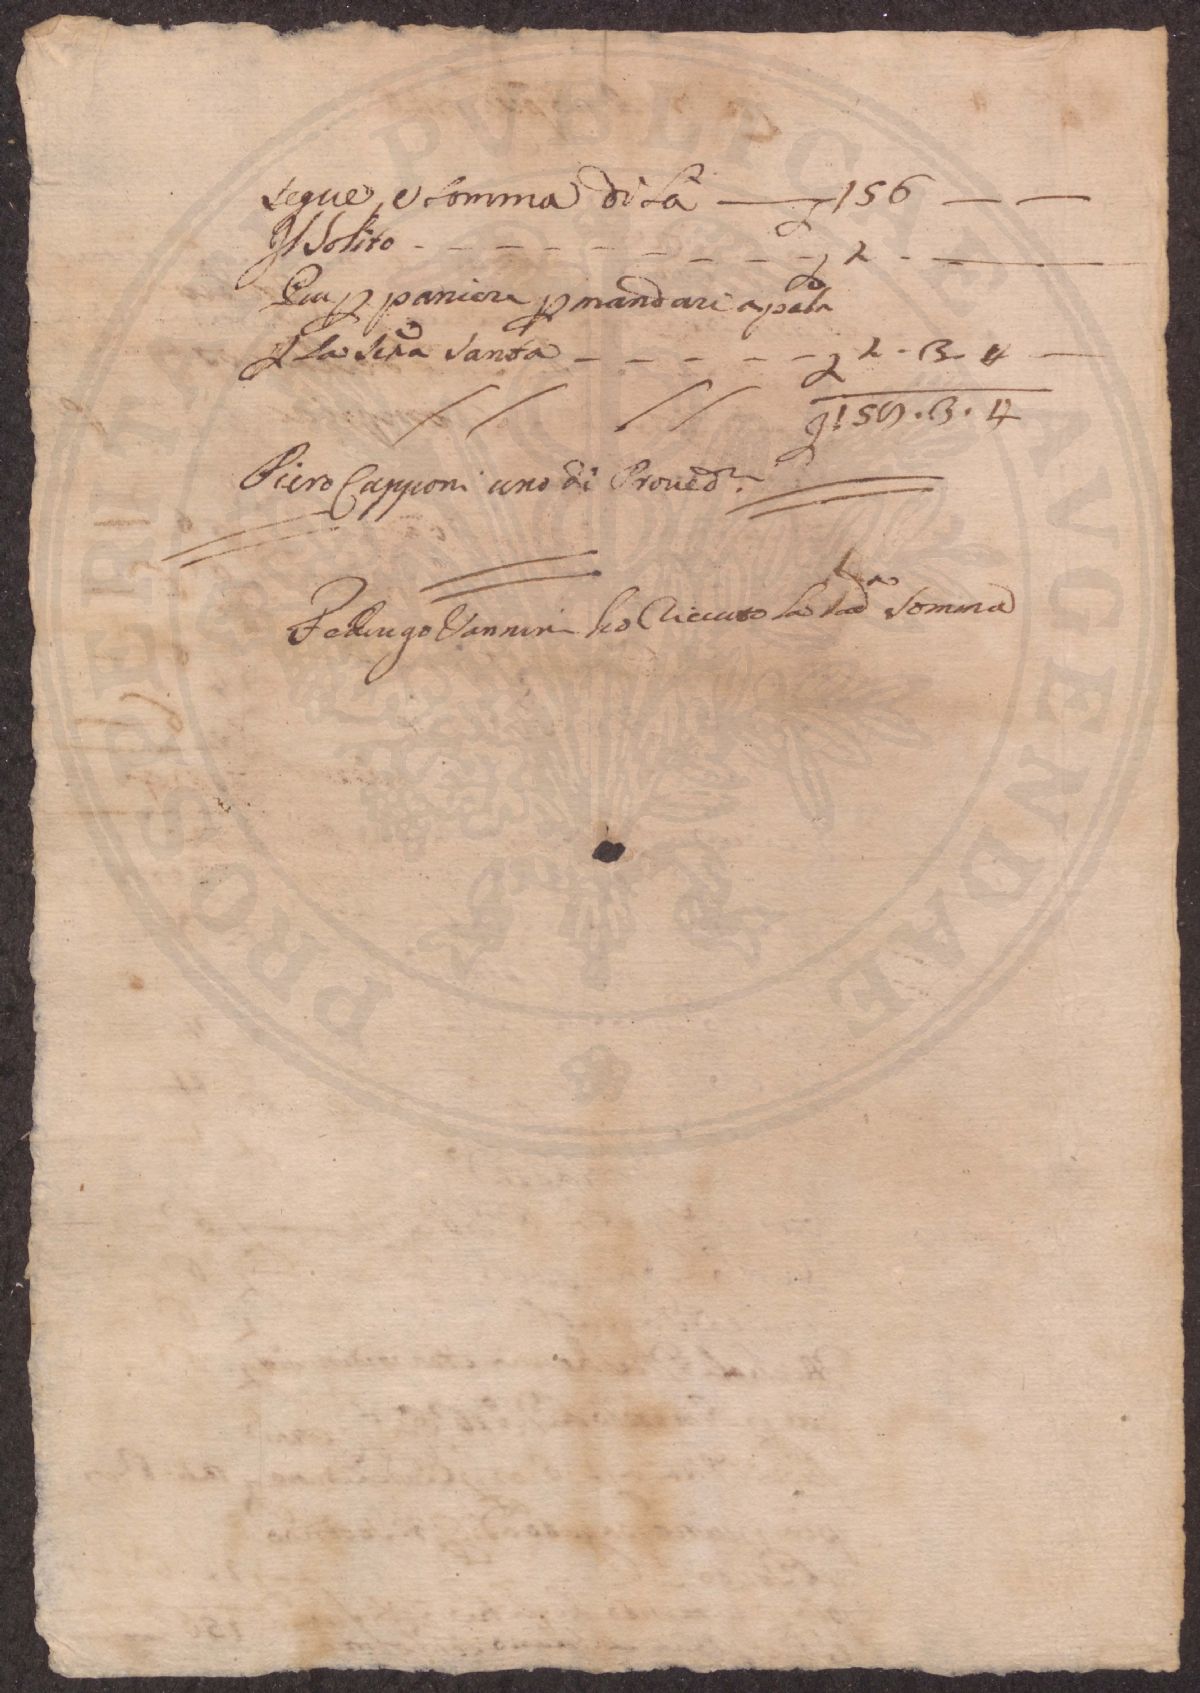 Segue, e somma di là —— £ 156 — —
Il Solito - - - - - - - - - £ 2 - —
Piu p paniere p mandare a
p La Setta Santa - - - - - - £ 2 - 3 - 4 —
£ 159 . 3 . 4
Piero Capponi uno di Proued.re
Federigo Vannini ho Riceuto la sud.a Somma
PROSPERITATI PVBLICAE AVGENDAE